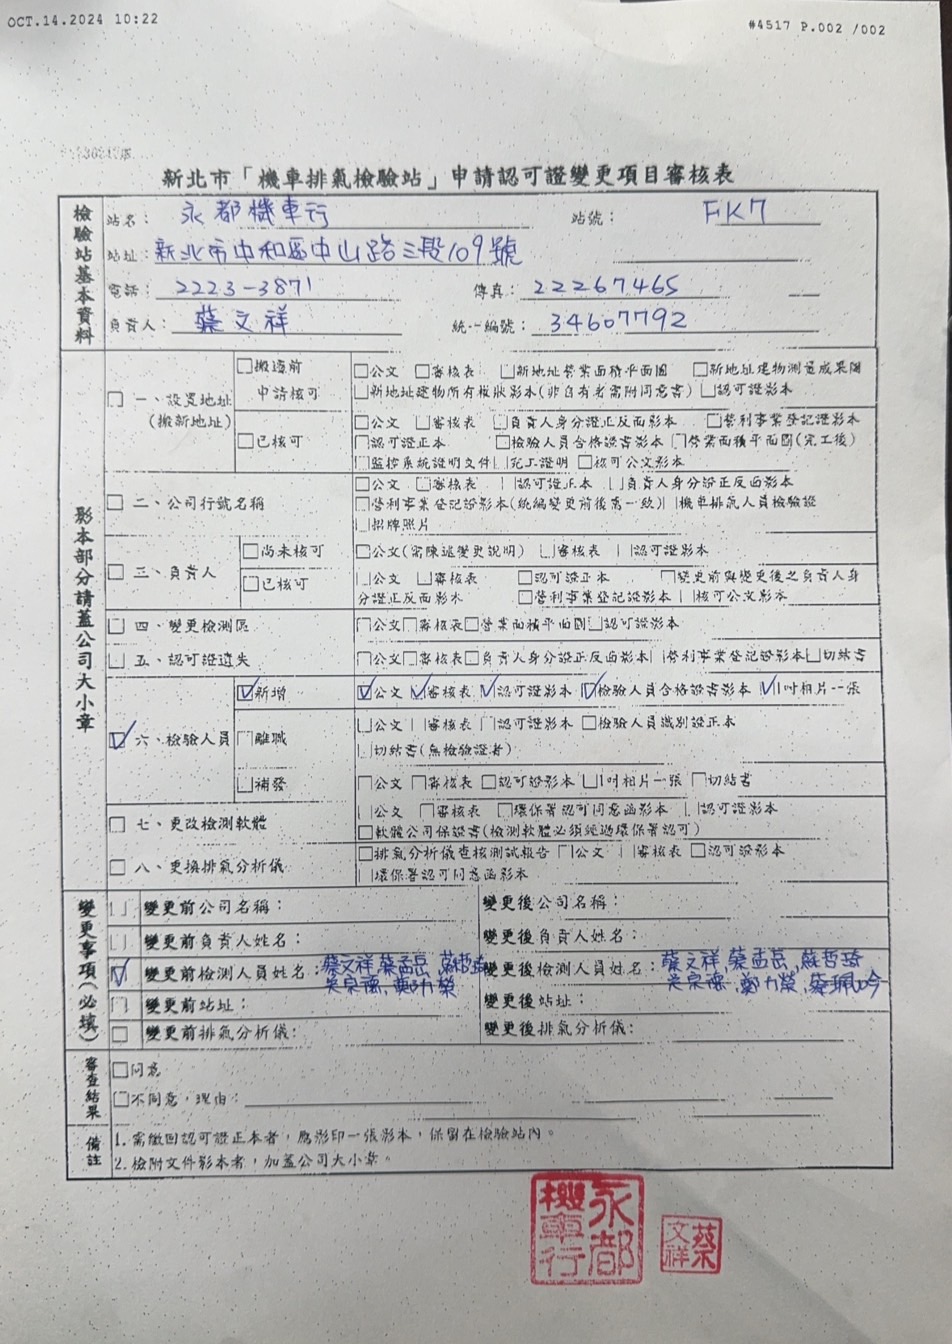 OCT.14.2024 10:22
#4517 P.002 /002
新北市「機車排氣檢驗站」申請認可證變更項目審核表
檢驗站基本資料
站名：永都機車行 站號：FK7
站址：新北市中和區中山路三段109號
電話：2223-3871 傳真：22267465
負責人：蔡文祥 統一編號：34607792
影本部分請蓋公司大小章
□一、設置地址(搬新地址)
□搬遷前申請核可
□公文 □審核表 □新地址營業面積平面圖 □新地址建物測量成果圖
□新地址建物所有權狀影本(非自有者需附同意書) □認可證影本
□已核可
□公文 □審核表 □負責人身分證正反面影本 □營利事業登記證影本
□認可證正本 □檢驗人員合格證書影本 □營業面積平面圖(完工後)
□監控系統證明文件 □完工證明 □核可公文影本
□二、公司行號名稱
□公文 □審核表 □認可證正本 □負責人身分證正反面影本
□營利事業登記證影本(統編變更前後需一致) □機車排氣人員檢驗證
□招牌照片
□三、負責人
□尚未核可
□公文(需陳述變更說明) □審核表 □認可證影本
□已核可
□公文 □審核表 □認可證正本 □變更前與變更後之負責人身
分證正反面影本 □營利事業登記證影本 □核可公文影本
□四、變更檢測區 □公文 □審核表 □營業面積平面圖 □認可證影本
□五、認可證遺失 □公文 □審核表 □負責人身分證正反面影本 □營利事業登記證影本 □切結書
☑六、檢驗人員
☑新增 ☑公文 ☑審核表 ☑認可證影本 ☑檢驗人員合格證書影本 ☑1吋相片一張
□離職 □公文 □審核表 □認可證影本 □檢驗人員識別證正本
□切結書(無檢驗證者)
□補發 □公文 □審核表 □認可證影本 □1吋相片一張 □切結書
□七、更改檢測軟體
□公文 □審核表 □環保署認可同意函影本 □認可證影本
□軟體公司保證書(檢測軟體必須經過環保署認可)
□八、更換排氣分析儀
□排氣分析儀查核測試報告 □公文 □審核表 □認可證影本
□環保署認可同意函影本
變更事項(必填)
□ 變更前公司名稱： 變更後公司名稱：
□ 變更前負責人姓名： 變更後負責人姓名：
☑ 變更前檢測人員姓名：蔡文祥 蔡孟岳,蘇哲琦 吳宗 鄭力榮
變更後檢測人員姓名：蔡文祥 蔡孟岳,蘇哲琦 吳宗 鄭力榮,蔡珮吟
□ 變更前站址： 變更後站址：
□ 變更前排氣分析儀： 變更後排氣分析儀：
審查結果
□同意
□不同意，理由：
備註
1.需繳回認可證正本者，應影印一張影本，保留在檢驗站內。
2.檢附文件影本者，加蓋公司大小章。
永都機車行
蔡文祥